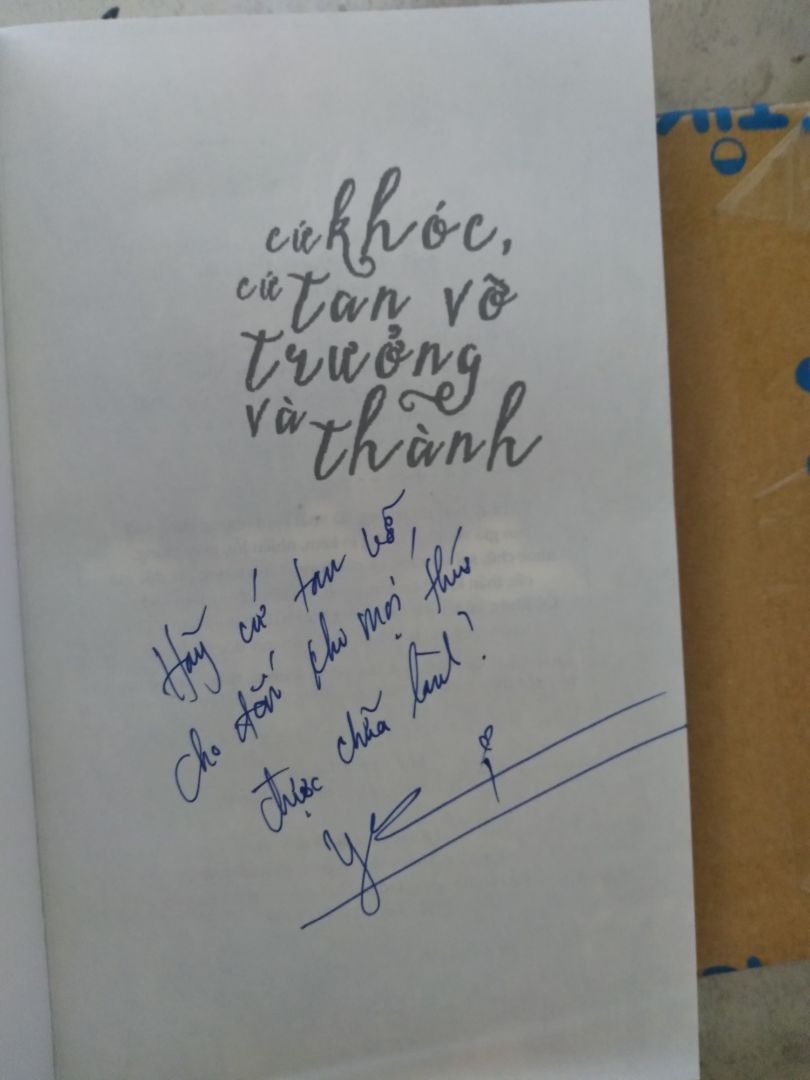 cứ khóc,
cứ tan vỡ
trưởng
và thành
Hãy cứ tan vỡ,
cho đến khi mọi thứ
được chữa lành!